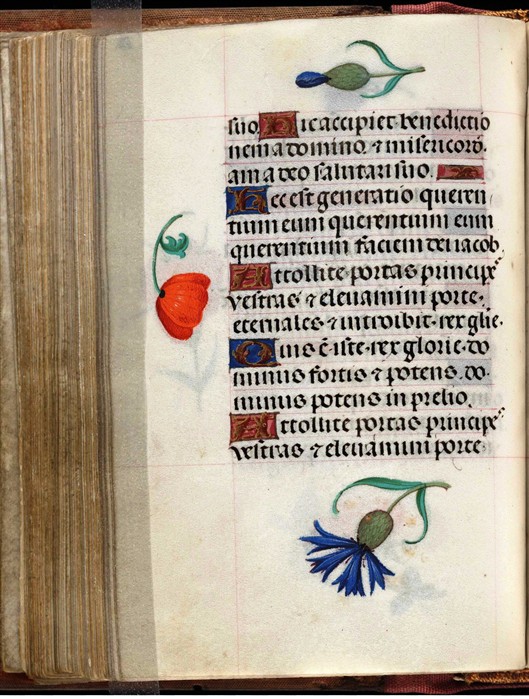 suo. Hic accipiet benedictio
nem a domino, ⁊ misericordi
am a deo salutari suo.
Hec est generatio queren
tium eum querentium eum
querentium faciem dei iacob.
Attollite portas principes
vestras ⁊ elevamini porte
eternales ⁊ introibit rex glorie.
Quis ē iste rex glorie. do
minus fortis ⁊ potens. do
minus potens in prelio.
Attollite portas principes
vestras ⁊ elevamini porte